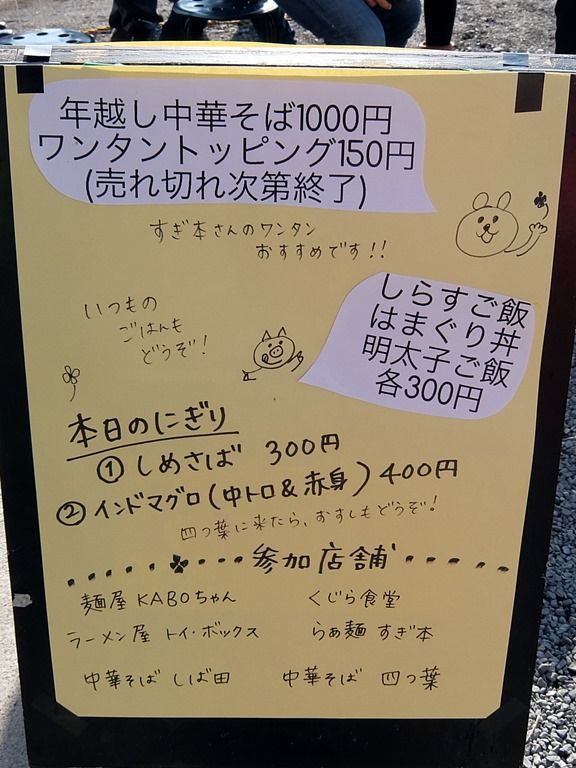 年越し中華そば1000円
ワンタントッピング150円
(売れ切れ次第終了)
すぎ本さんのワンタン
おすすめです!!
いつもの
ごはんも
どうぞ!
しらすご飯
はまぐり丼
明太子ご飯
各300円
本日のにぎり
① しめさば 300円
② インドマグロ(中トロ&赤身) 400円
四つ葉に来たら、おすしもどうぞ!
参加店舗
麺屋 KABOちゃん くじら食堂
ラーメン屋 トイ・ボックス らぁ麺 すぎ本
中華そば しば田 中華そば 四つ葉